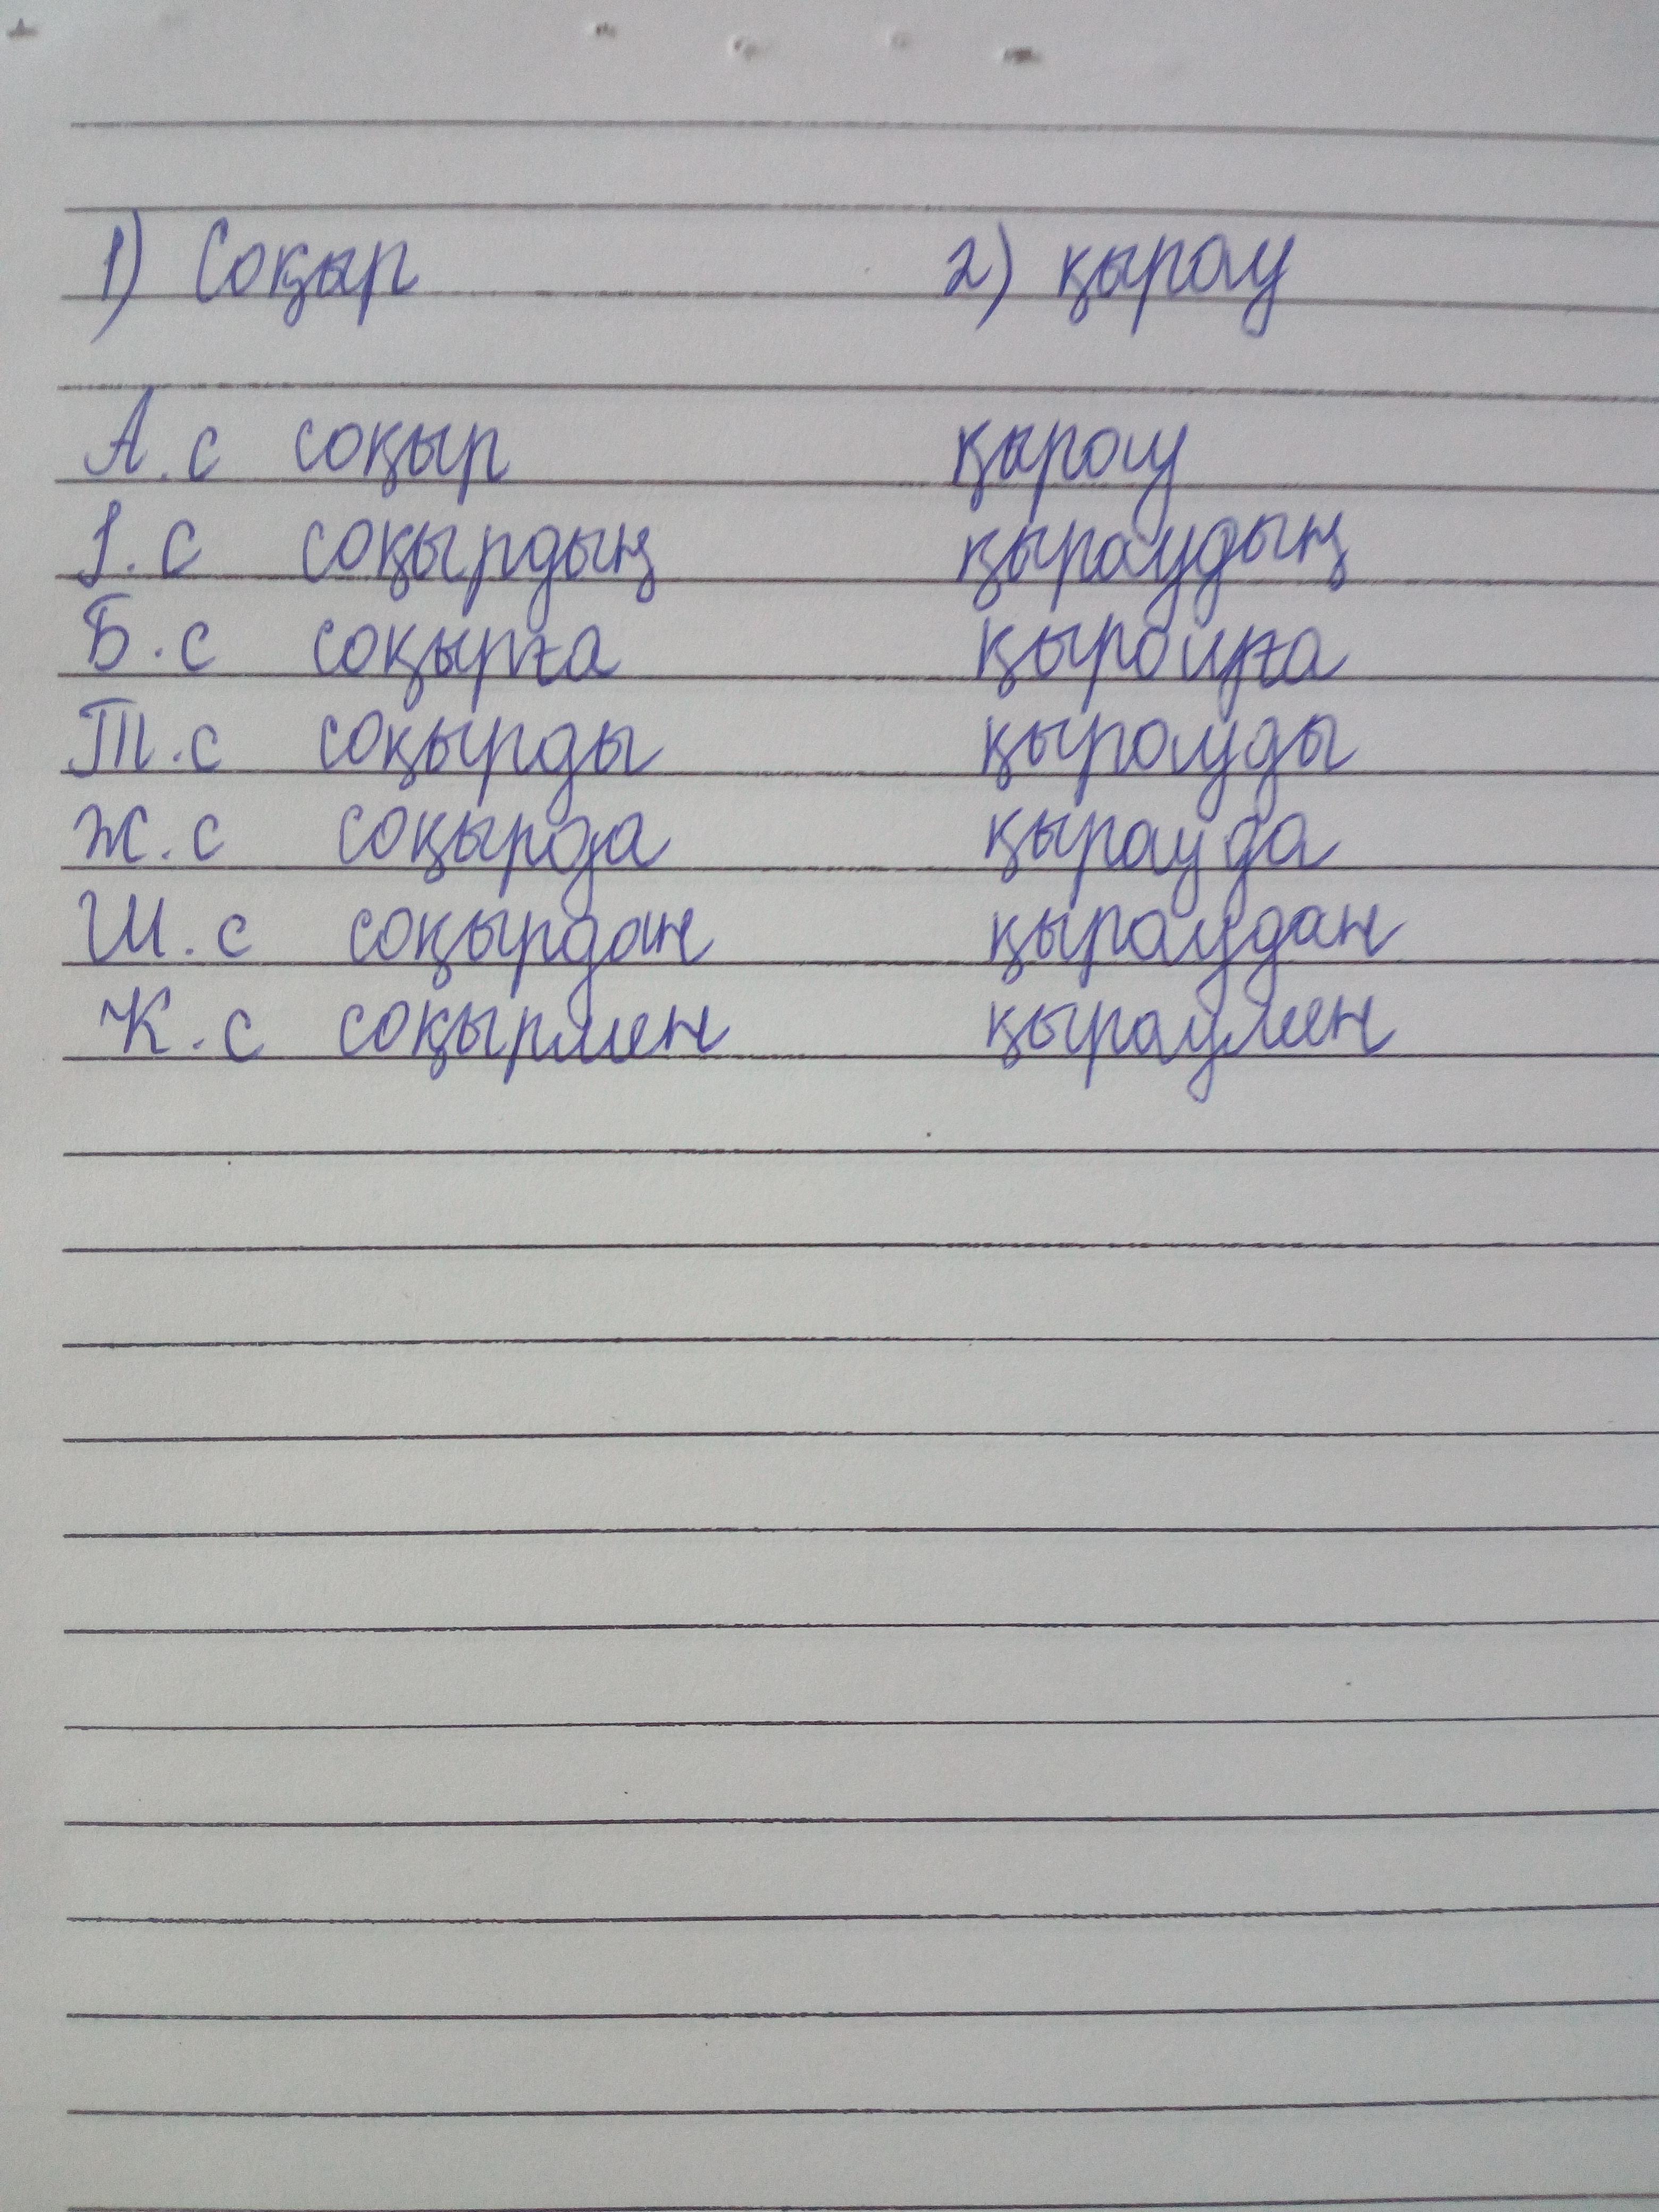 1) Соқыр 2) қырау
А.с соқыр қырау
І.с соқырдың қыраудың
Б.с соқырға қырауға
Т.с соқырды қырауды
Ж.с соқырда қырауда
Ш.с соқырдан қыраудан
К.с соқырмен қыраумен